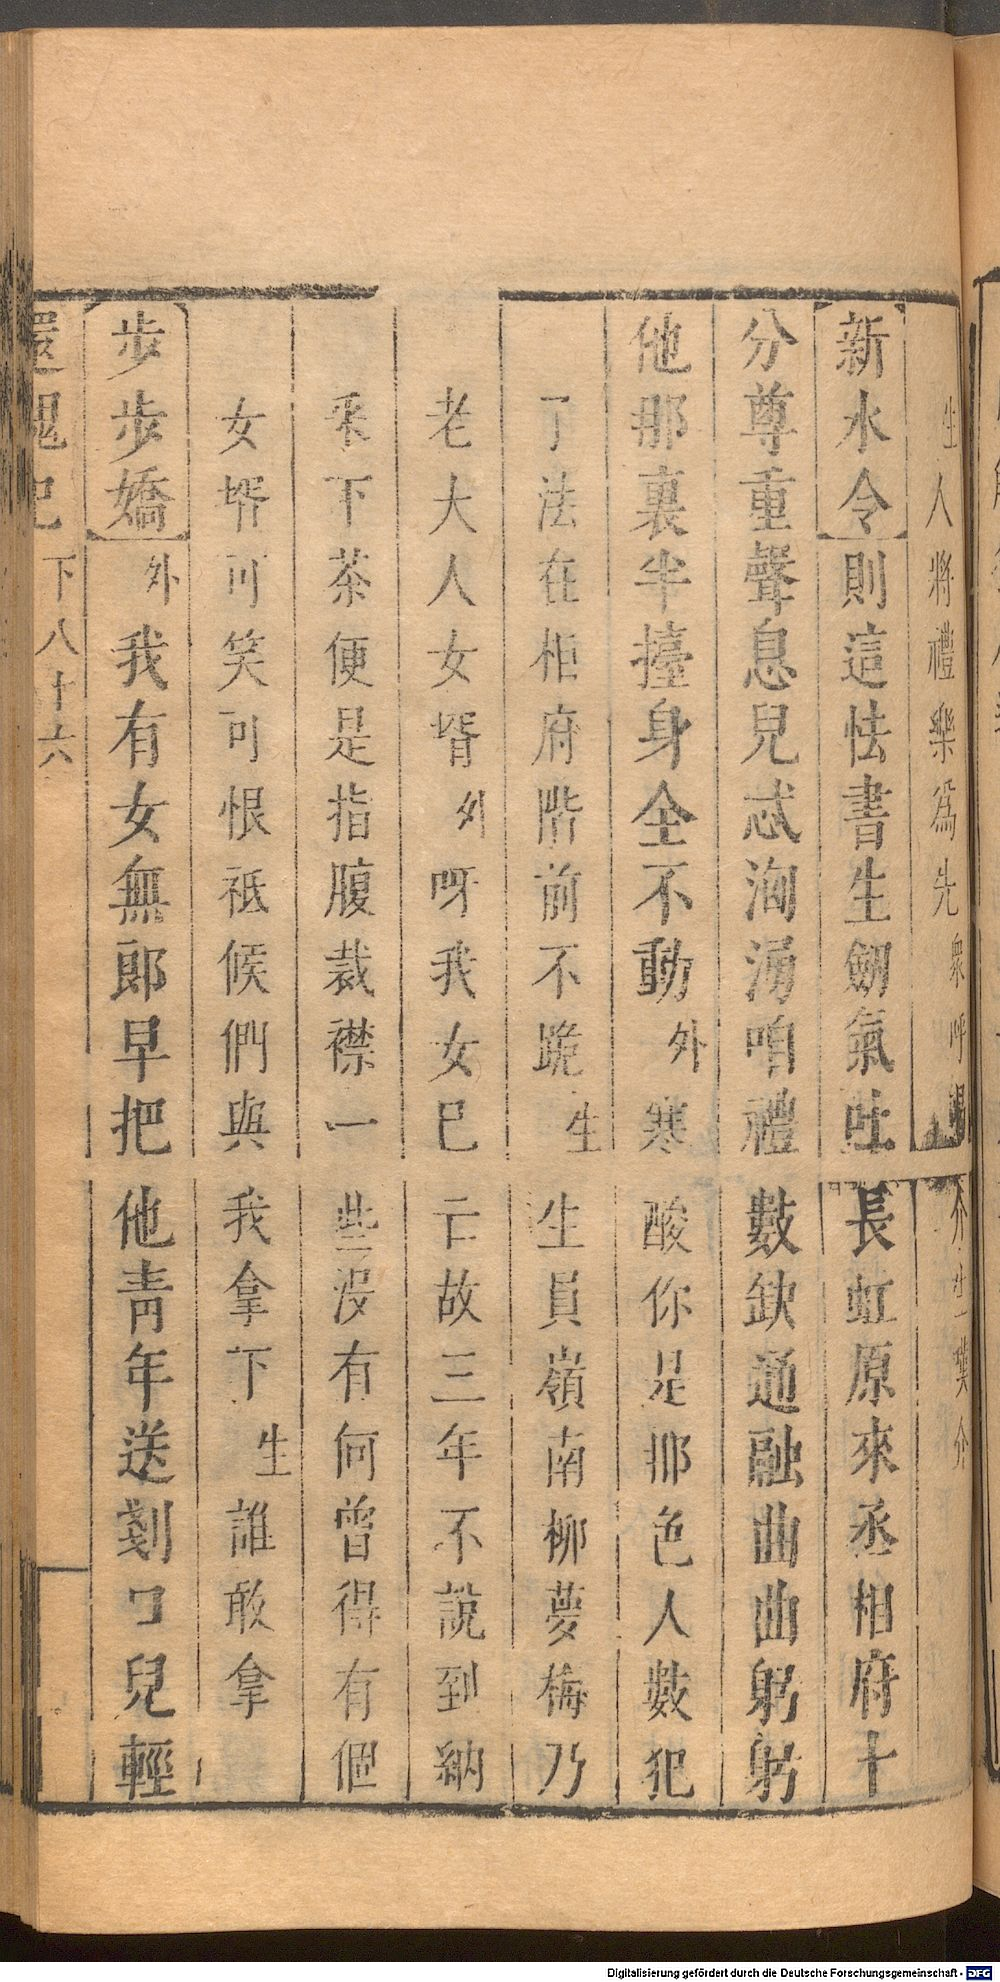 生人將禮樂爲先衆呼喝介生揖介
新水令則這怯書生劒氣吐長虹原來丞相府十
分尊重聲息兒忒洶湧咱禮數缺通融曲曲躬躬
他那裏半擡身全不動外寒酸你是那色人數犯
了法在相府階前不跪生生員嶺南柳夢梅乃
老大人女壻外呀我女已亡故三年不說到納
采下茶便是指腹裁襟一些沒有何曾得有個
女壻可笑可恨祗候們與我拿下生誰敢拿
步步嬌外我有女無郎早把他靑年送剗口兒輕
還魂記 下八十六
Digitalisierung gefördert durch die Deutsche Forschungsgemeinschaft - DFG